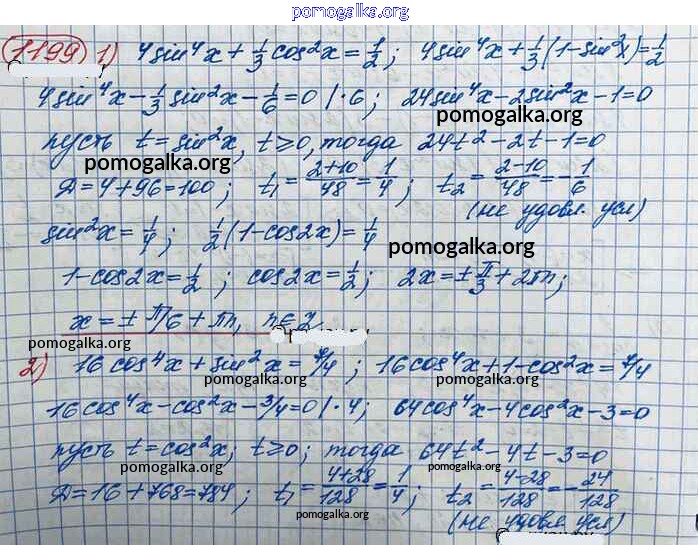 pomogalka.org
1199 1) 4sin⁴x + 1/3 cos²x = 1/2; 4sin⁴x + 1/3(1-sin²x) = 1/2
4sin⁴x - 1/3 sin²x - 1/6 = 0 | ·6; 24sin⁴x - 2sin²x - 1 = 0
pomogalka.org
пусть t = sin²x, t ≥ 0, тогда 24t² - 2t - 1 = 0
pomogalka.org
Д = 4 + 96 = 100; t₁ = (2+10)/48 = 1/4; t₂ = (2-10)/48 = -1/6
(не удовл. усл)
sin²x = 1/4; 1/2(1-cos2x) = 1/4
pomogalka.org
1 - cos2x = 1/2; cos2x = 1/2; 2x = ± π/3 + 2πn;
x = ± π/6 + πn, n ∈ Z
pomogalka.org
2) 16cos⁴x + sin²x = 7/4; 16cos⁴x + 1 - cos²x = 7/4
pomogalka.org pomogalka.org
16cos⁴x - cos²x - 3/4 = 0 | ·4; 64cos⁴x - 4cos²x - 3 = 0
пусть t = cos²x; t ≥ 0; тогда 64t² - 4t - 3 = 0
pomogalka.org pomogalka.org
Д = 16 + 768 = 784; t₁ = (4+28)/128 = 1/4; t₂ = (4-28)/128 = -24/128
pomogalka.org
(не удовл. усл)